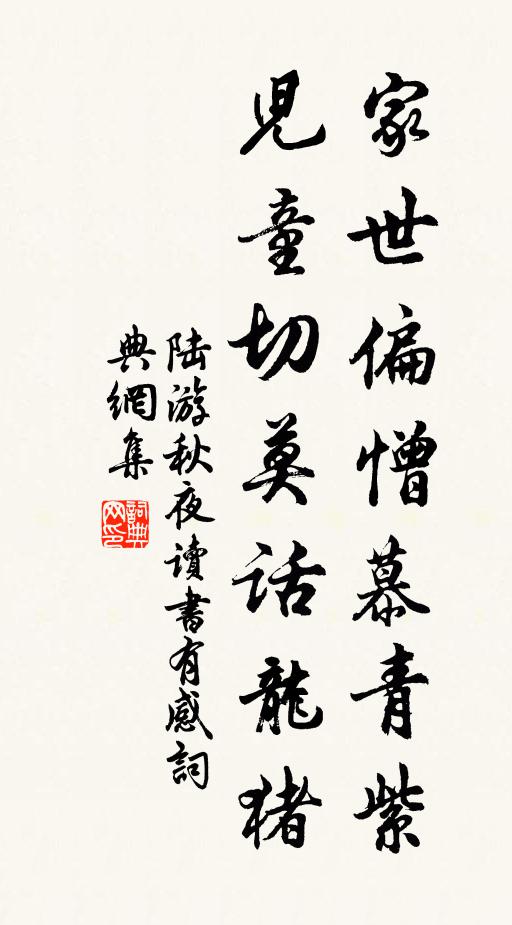 家世偏憎慕青紫
兒童切莫話龍猪
陆游秋夜讀書有感詞
典網集
詞典网印